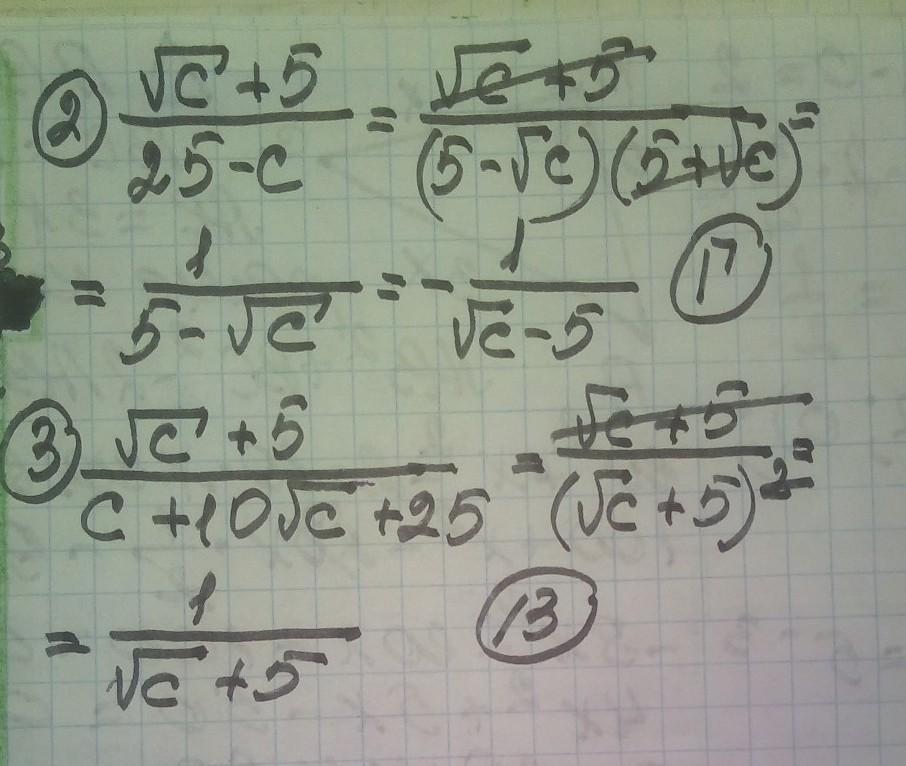 ② (√c + 5)/(25 - c) = (√c + 5)/((5 - √c)(5 + √c)) =
= 1/(5 - √c) = - 1/(√c - 5) ⑰
③ (√c + 5)/(c + 10√c + 25) = (√c + 5)/((√c + 5)²) =
= 1/(√c + 5) ⑬